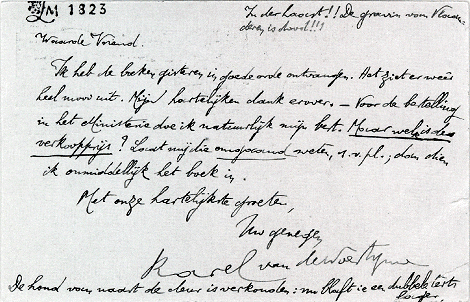 M 1823
In der haast!! De gravin van Vlaan-
deren is dood!!!
Waarde Vriend.
Ik heb de boeken gisteren in goede orde ontvangen. Het ziet er weêr
heel mooi uit. Mijn hartelijken dank erover. — Voor de bestelling
in het Ministerie doe ik natuurlijk mijn best. Maar welk is de
verkoopprijs? Laat mij die omgaand weten, s.v.pl.; dan dien
ik onmiddellijk het boek in.
Met onze hartelijkste groeten,
Uw genegen
Karel van de Woestijne
De hond van naast de deur is verkouden: nu blaft ie een dubbele terts
lager.